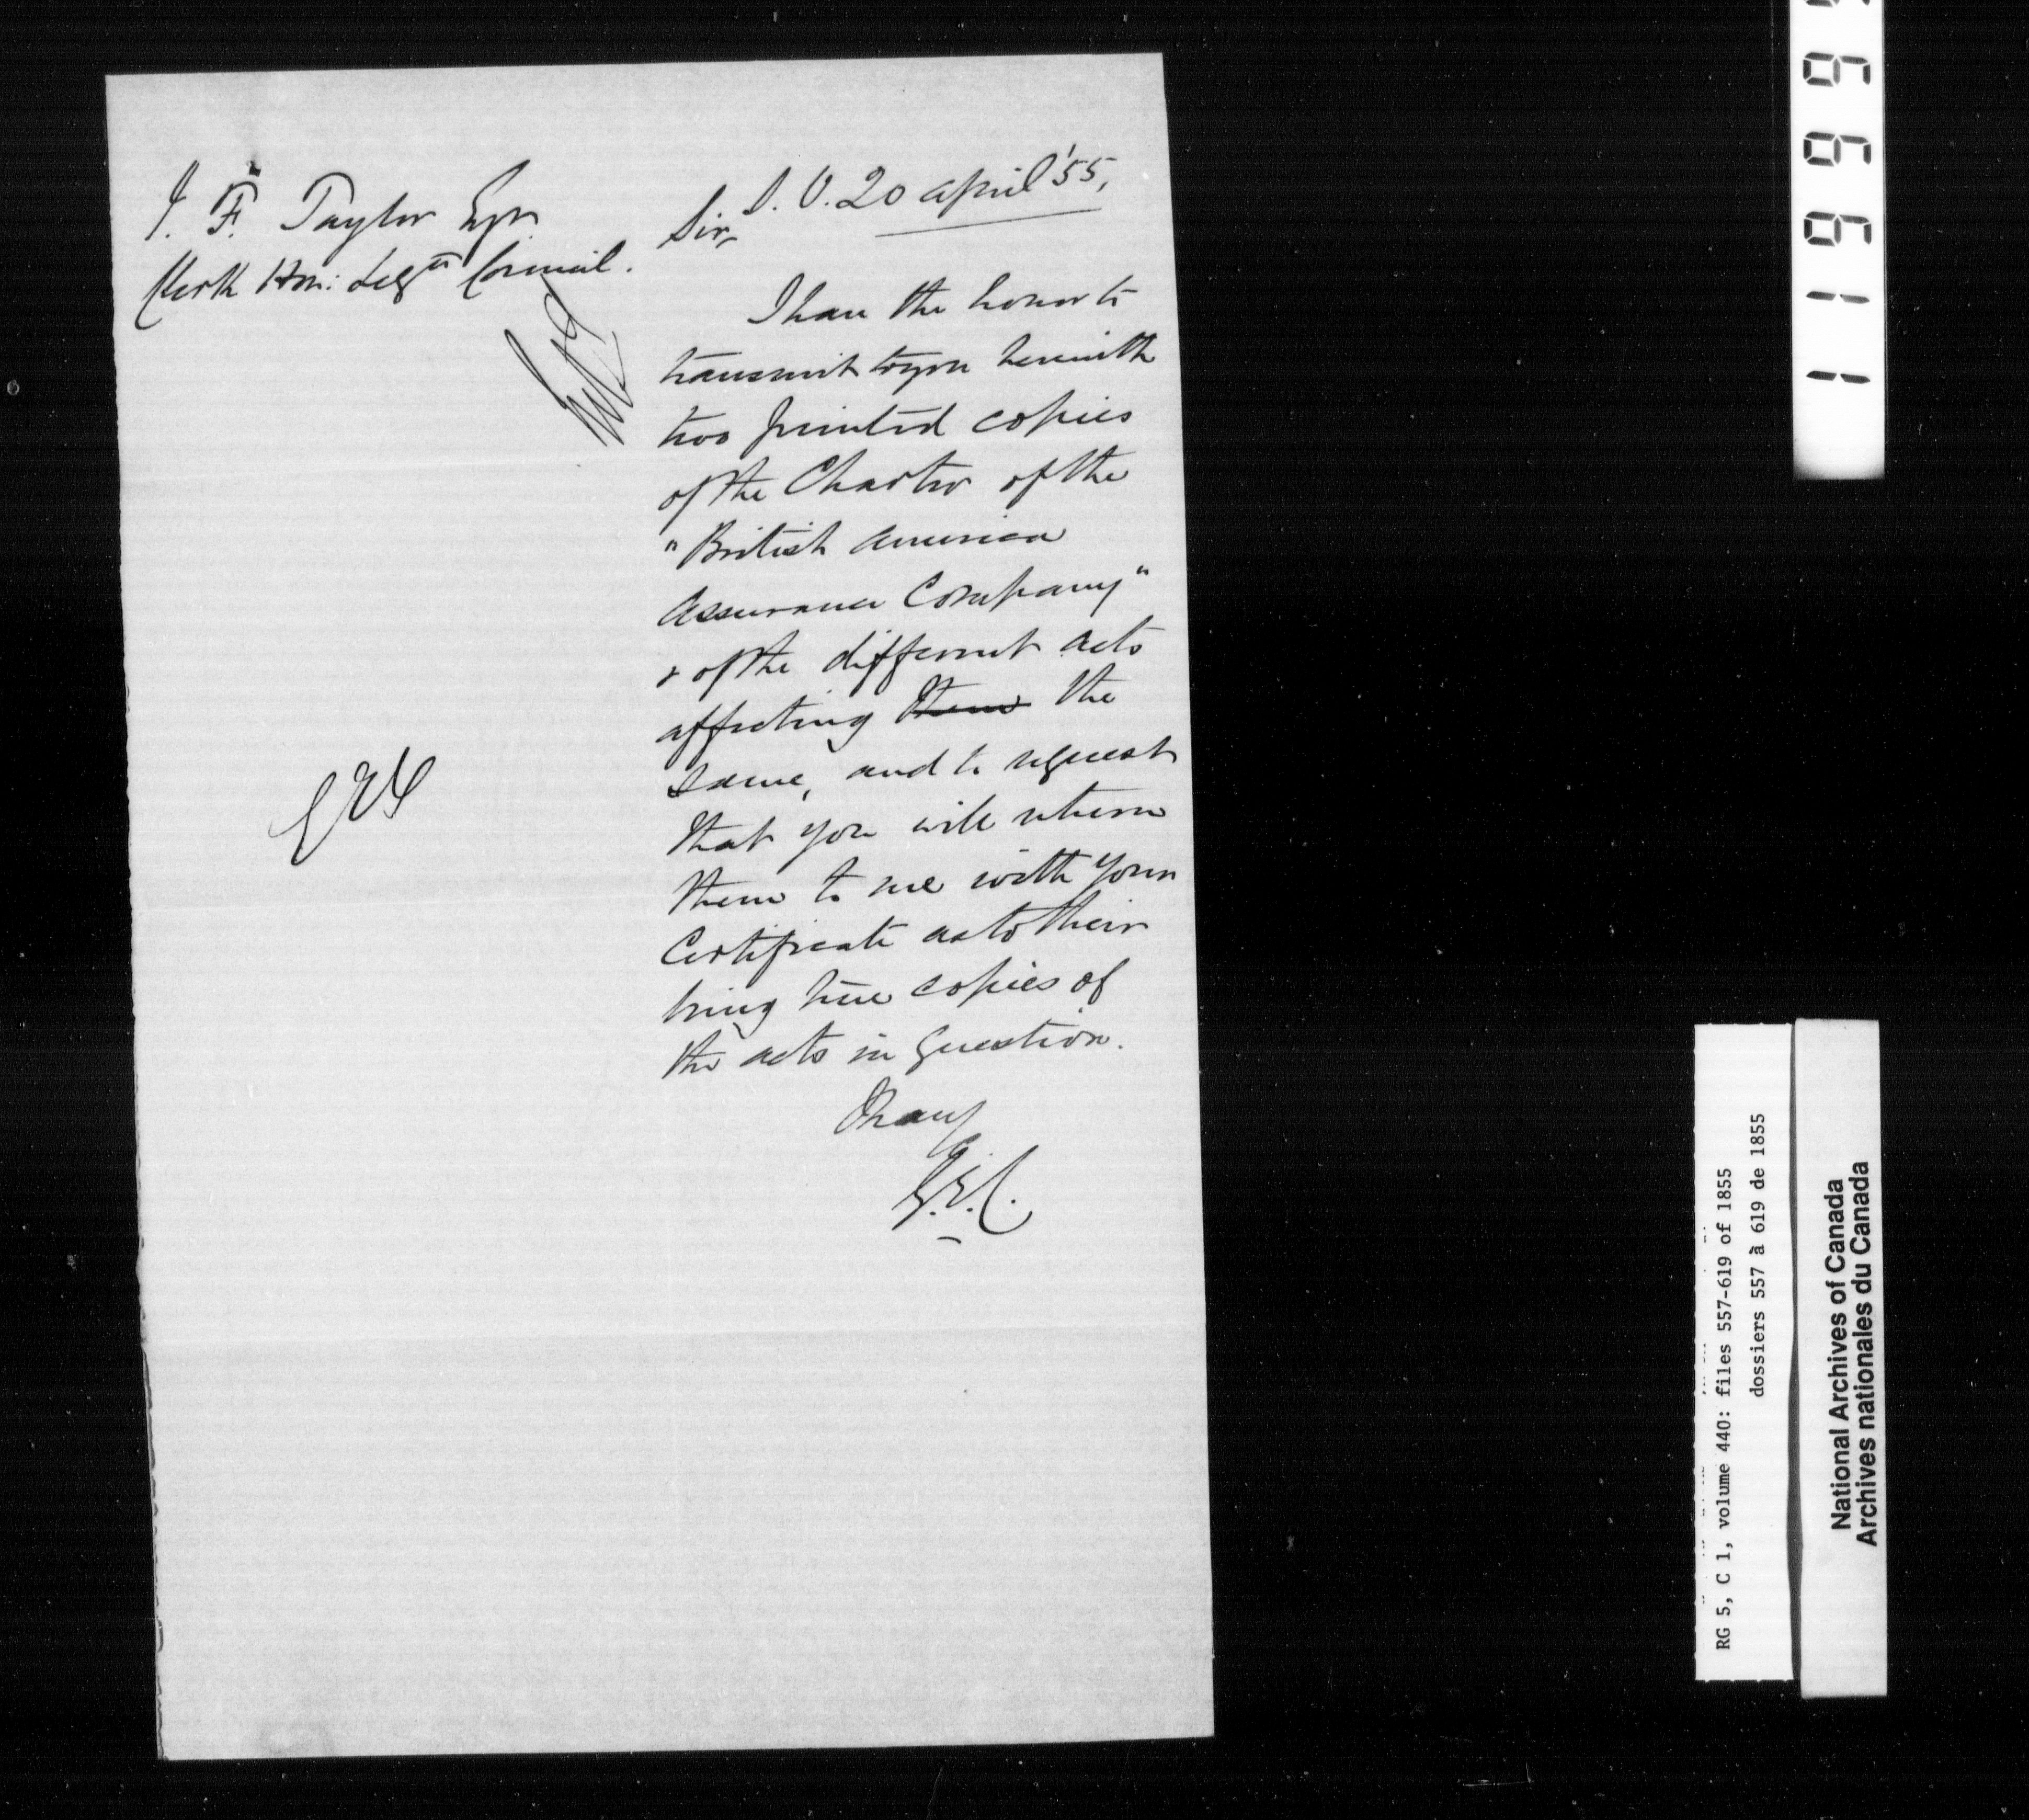 J. F. Taylor Esqr.
Clerk Hon: Legve Council.
S. O. 20 April '55,
Sir,
I have the honor to
transmit to you herewith
two printed copies
of the Charter of the
"British America
Assurance Company"
& of the different acts
affecting them the
same, and to request
that you will return
them to me with your
Certificate as to their
being true copies of
the acts in question.
I have
G.E.C.
GEC
RG 5, C 1, volume 440: files 557-619 of 1855
dossiers 557 à 619 de 1855
National Archives of Canada
Archives nationales du Canada